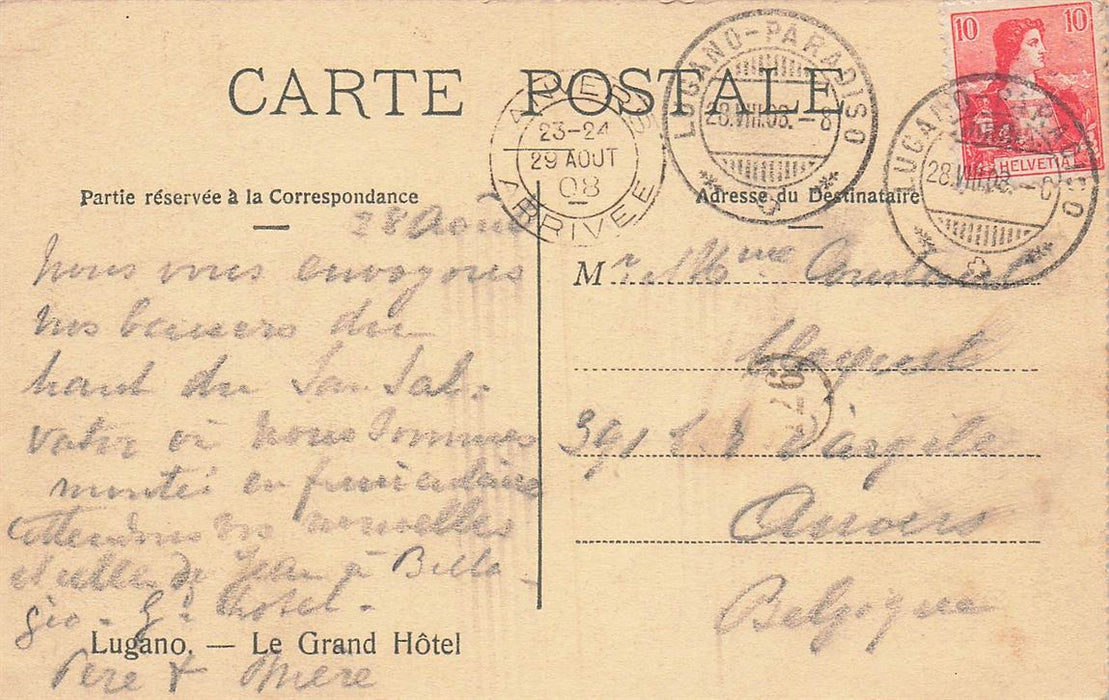 CARTE POSTALE
10 10
HELVETIA
LUGANO-PARADISO
28.VIII.08.-8
LUGANO-PARADISO
28.VIII.08.-8
ANVERS
23-24
29 AOUT
08
ARRIVEE
Partie réservée à la Correspondance
Adresse du Destinataire
28 Août
Nous vous envoyons
nos baisers du
haut du San Sal-
vator où nous sommes
montés en funiculaire
attendons vos nouvelles
et celles de Jean à Bella-
gio - Gd Hotel -
Père & Mère
Mr & Mme
391 d'Argile
Anvers
Belgique
Lugano. — Le Grand Hôtel